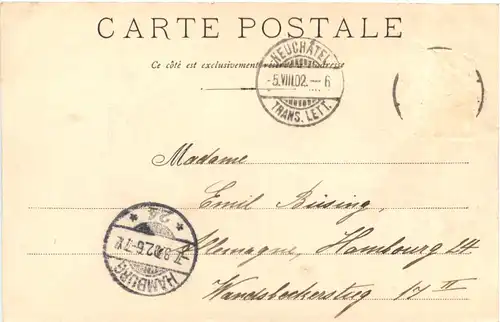 CARTE POSTALE
Ce côté est exclusivement réservé à l'adresse
NEUCHÂTEL
-5.VIII.02.-6
TRANS. LETT.
Madame
Emil Büsing,
Allemagne, Hambourg 24
Wandsbeckerstieg 17 II
* 24 *
7.8.02.6-7 V.
HAMBURG